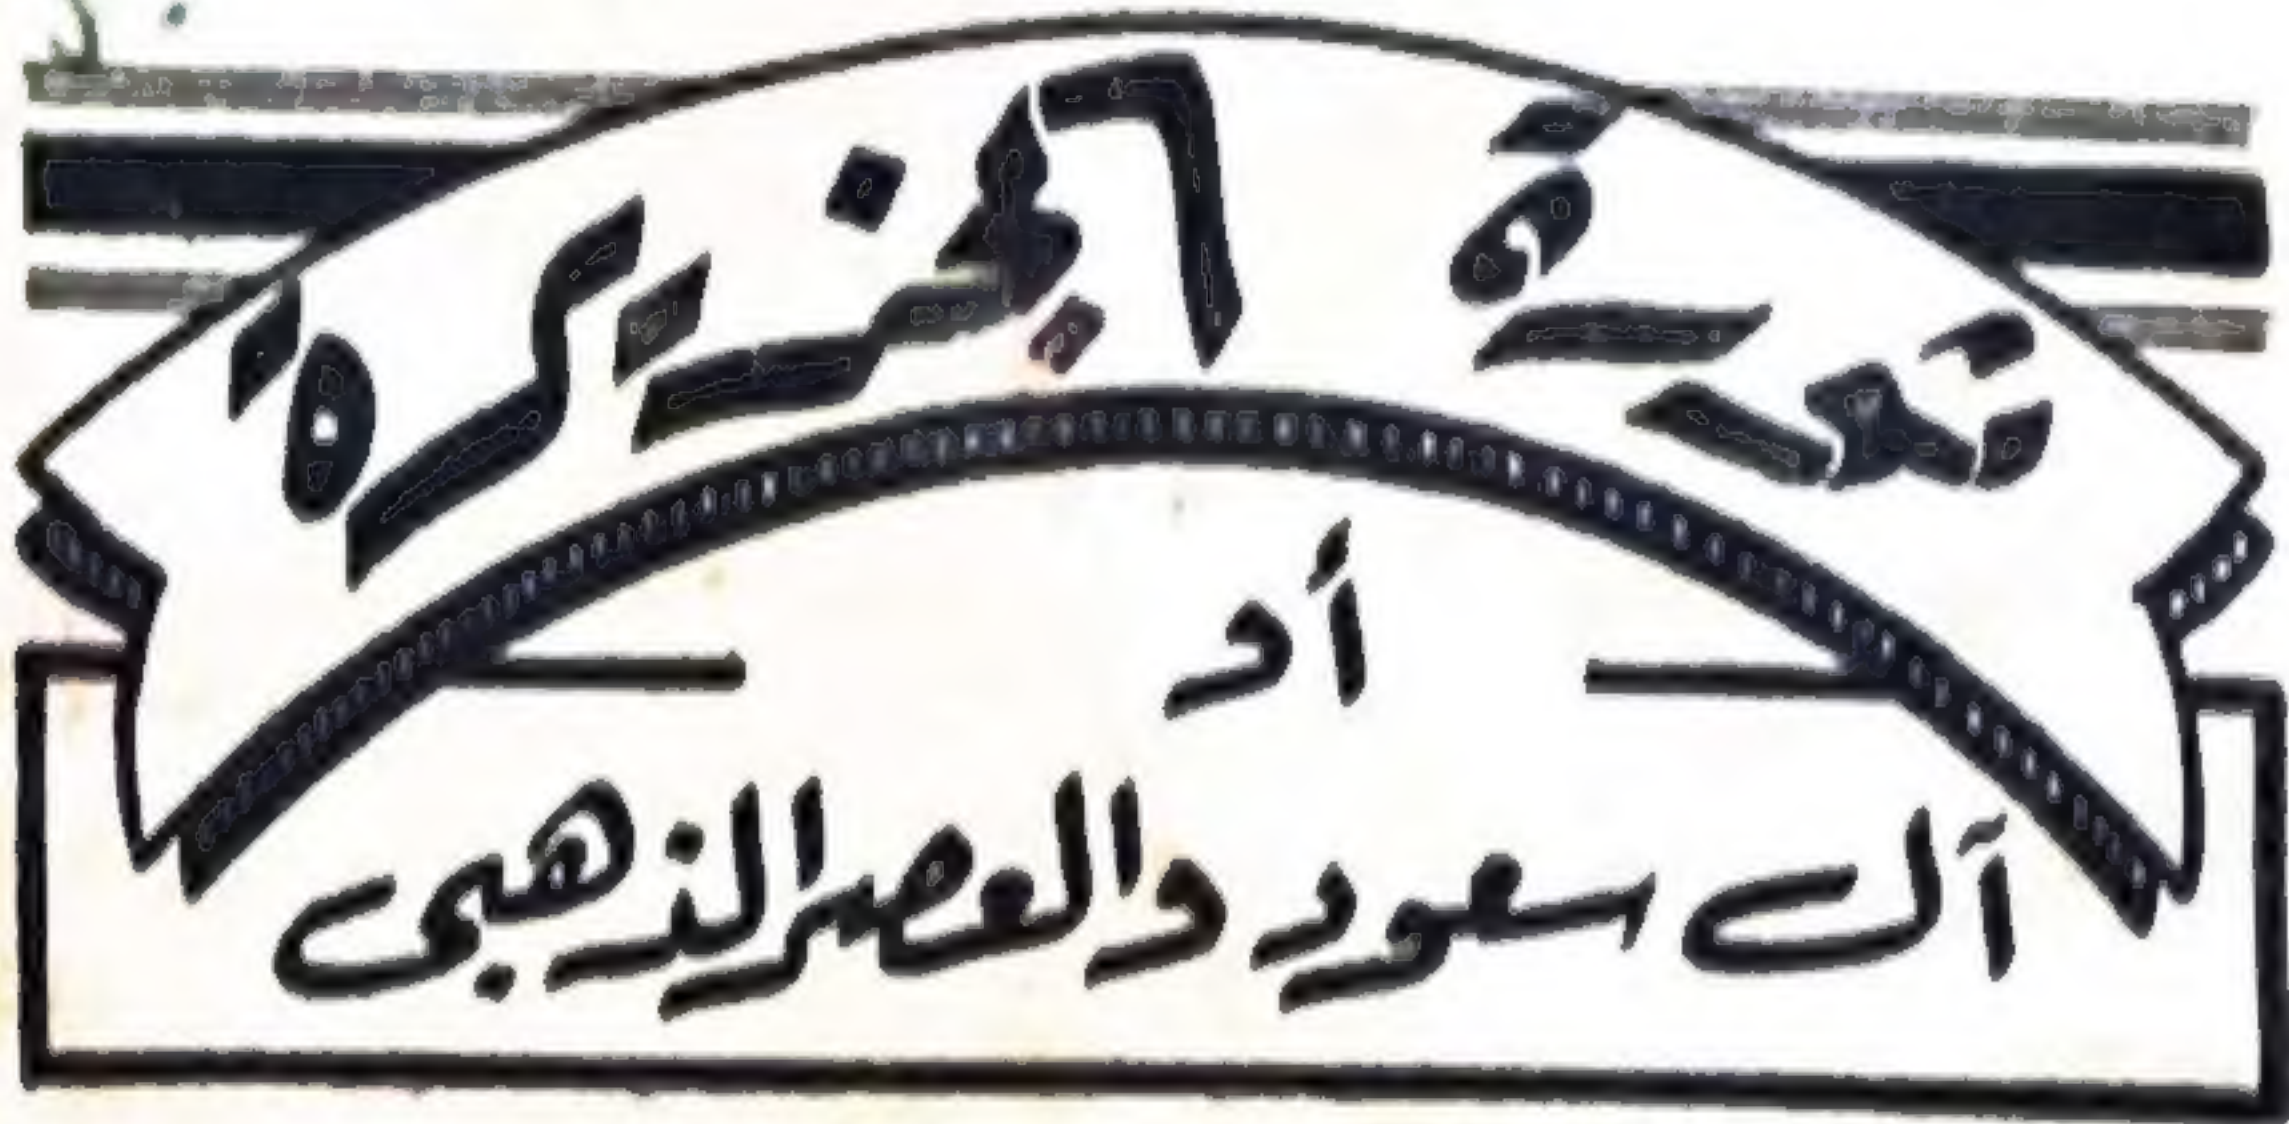 الجزيرة
أو
آل سعود والعصر الذهبى